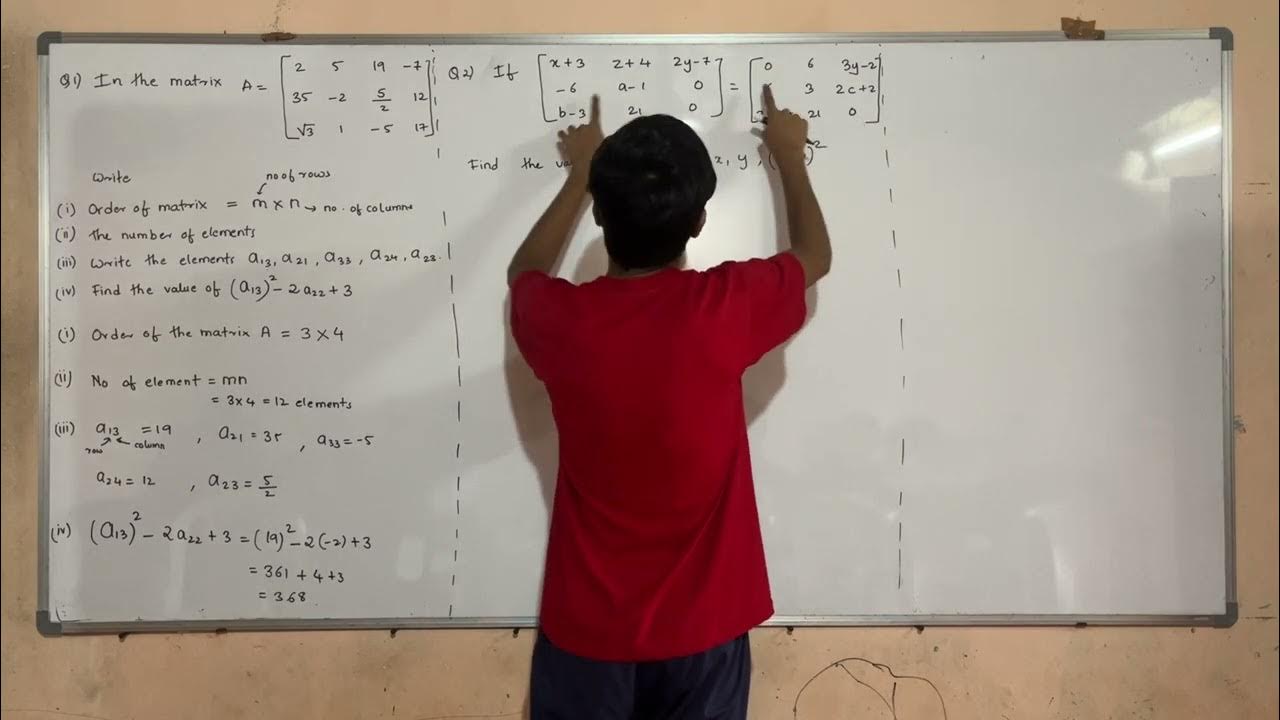 Q1) In the matrix A = [ 2 5 19 -7
35 -2 5/2 12
√3 1 -5 17 ]
Write
no of rows
(i) Order of matrix = m × n → no. of columns
(ii) the number of elements
(iii) Write the elements a₁₃, a₂₁, a₃₃, a₂₄, a₂₃.
(iv) Find the value of (a₁₃)² - 2a₂₂ + 3
(i) Order of the matrix A = 3 × 4
(ii) No of element = mn
= 3×4 = 12 elements
(iii) a₁₃ = 19 , a₂₁ = 35 , a₃₃ = -5
row column
a₂₄ = 12 , a₂₃ = 5/2
(iv) (a₁₃)² - 2a₂₂ + 3 = (19)² - 2(-2) + 3
= 361 + 4 + 3
= 368
Q2) If [ x+3 z+4 2y-7 ] = [ 0 6 3y-2 ]
-6 a-1 0 3 2c+2
b-3 21 0 21 0
Find the x, y, ( )²